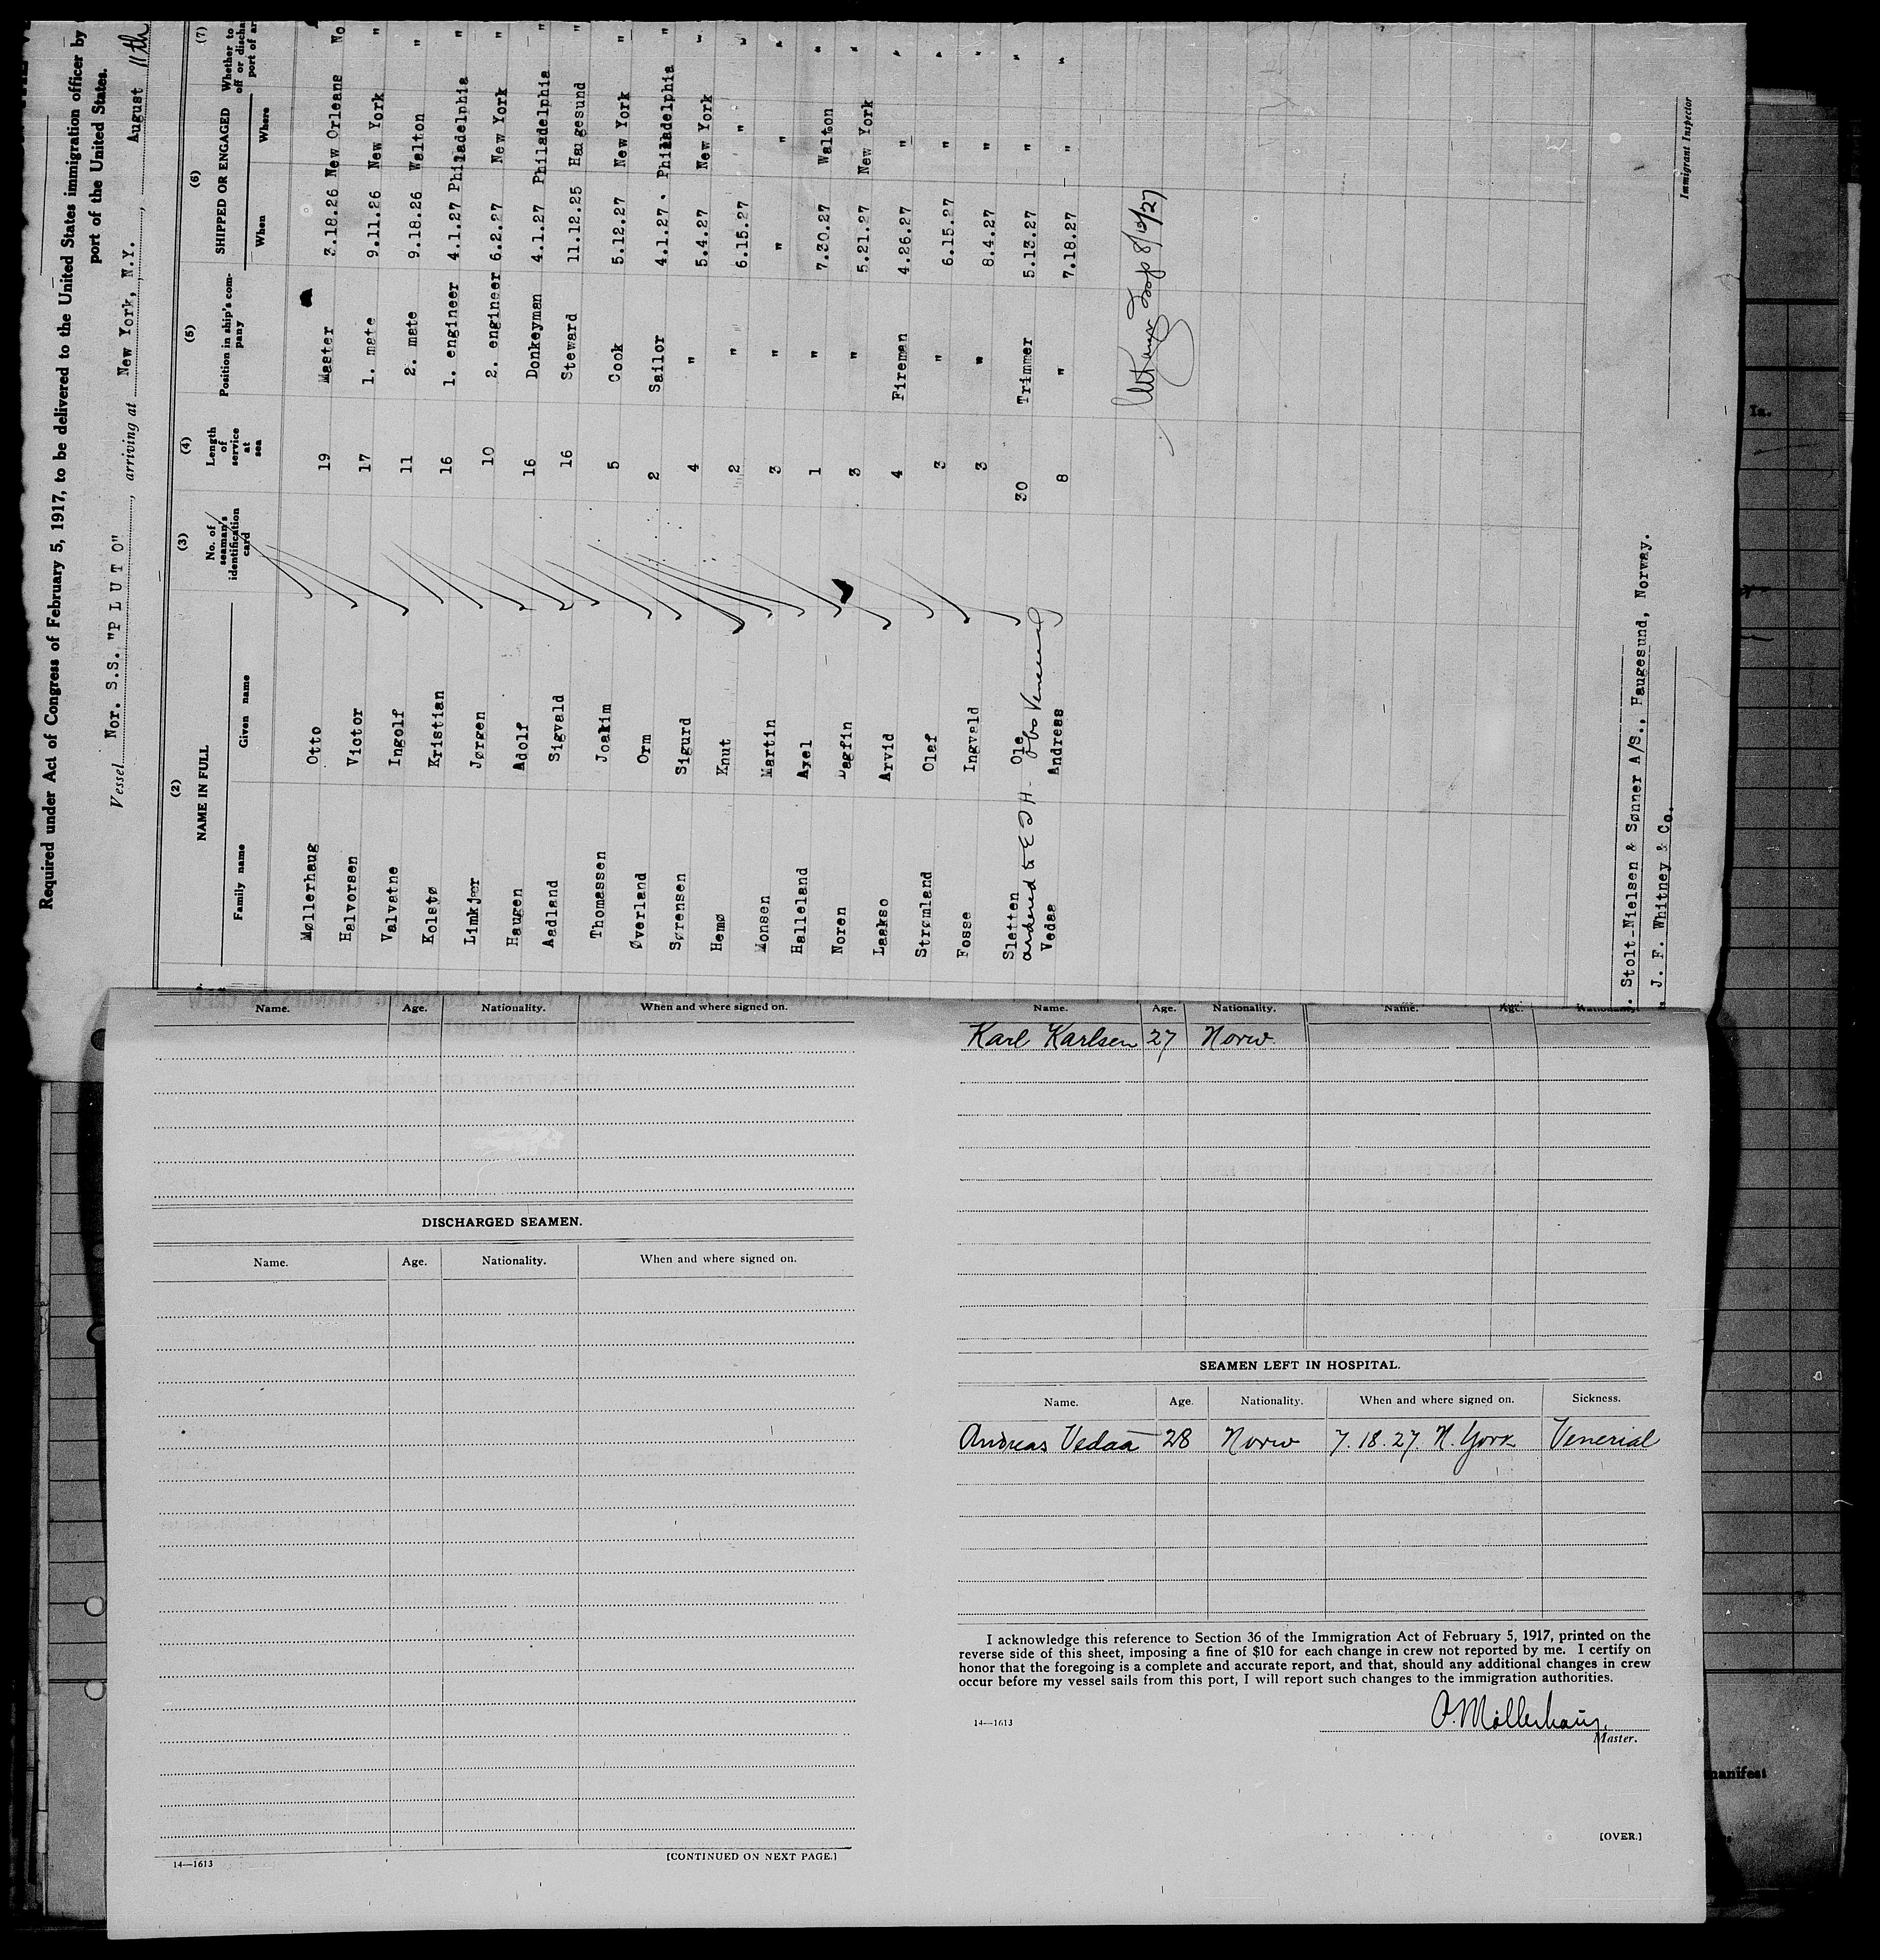 Required under Act of Congress of February 5, 1917, to be delivered to the United States immigration officer by
port of the United States.
Vessel Nor. S.S. "P L U T O", arriving at New York, N.Y., August 11th
(2) (3) (4) (5) (6) (7)
NAME IN FULL
Family name Given name
No. of seaman's identification card
Length of service at sea
Position in ship's company
SHIPPED OR ENGAGED
When Where
Whether to
off or discha
port of ar
Møllerhaug Otto 19 Master 3.18.26 New Orleans No
Halvorsen Victor 17 1. mate 9.11.26 New York "
Valvatne Ingolf 11 2. mate 9.18.26 Walton "
Kolstø Kristian 16 1. engineer 4.1.27 Philadelphia "
Limkjær Jørgen 10 2. engineer 6.2.27 New York "
Haugen Adolf 16 Donkeyman 4.1.27 Philadelphia "
Aadland Sigvald 16 Steward 11.12.25 Haugesund "
Thomassen Joakim 5 Cook 5.12.27 New York "
Øverland Orm 2 Sailor 4.1.27. Philadelphia "
Sørensen Sigurd 4 " 5.4.27 New York "
Hemø Knut 2 " 6.15.27 " "
Monsen Martin 3 " " " "
Halleland Axel 1 " 7.30.27 Walton "
Noren Dagfin 3 " 5.21.27 New York "
Laakso Arvid 4 Fireman 4.26.27 " "
Strømland Olaf 3 " 6.15.27 " "
Fosse Ingvald 3 " 8.4.27 " "
Sletten Ole 30 Trimmer 5.13.27 " "
ordered to E I H - obs Venereal
Vedaa Andreas 8 " 7.18.27 " "
Insp 8/12/27
. Stolt-Nielsen & Sønner A/S., Haugesund, Norway.
. J. F. Whitney & Co.
Immigrant Inspector
Name. Age. Nationality. When and where signed on.
DISCHARGED SEAMEN.
Name. Age. Nationality. When and where signed on.
14—1613
[CONTINUED ON NEXT PAGE.]
Name. Age. Nationality. Name. Age. Nationality.
Karl Karlsen 27 Norw.
SEAMEN LEFT IN HOSPITAL.
Name. Age. Nationality. When and where signed on. Sickness.
Andreas Vedaa 28 Norw 7.18.27. N. York Venerial
I acknowledge this reference to Section 36 of the Immigration Act of February 5, 1917, printed on the
reverse side of this sheet, imposing a fine of $10 for each change in crew not reported by me. I certify on
honor that the foregoing is a complete and accurate report, and that, should any additional changes in crew
occur before my vessel sails from this port, I will report such changes to the immigration authorities.
O. Møllerhaug.
14—1613
Master.
[OVER.]
manifest